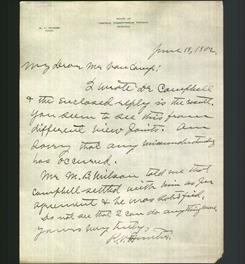 June 18, 1902
My Dear Mr Van Camp:
I wrote Dr Campbell
& the enclosed reply is the result.
You seem to see this from
different view points. Am
sorry that any misunderstanding
has occurred.
Mr M. B. Wilson told me that
Campbell settled with him as per
agreement & he was satisfied,
Do not see that I can do anything more
Yours very truly,
Hunter